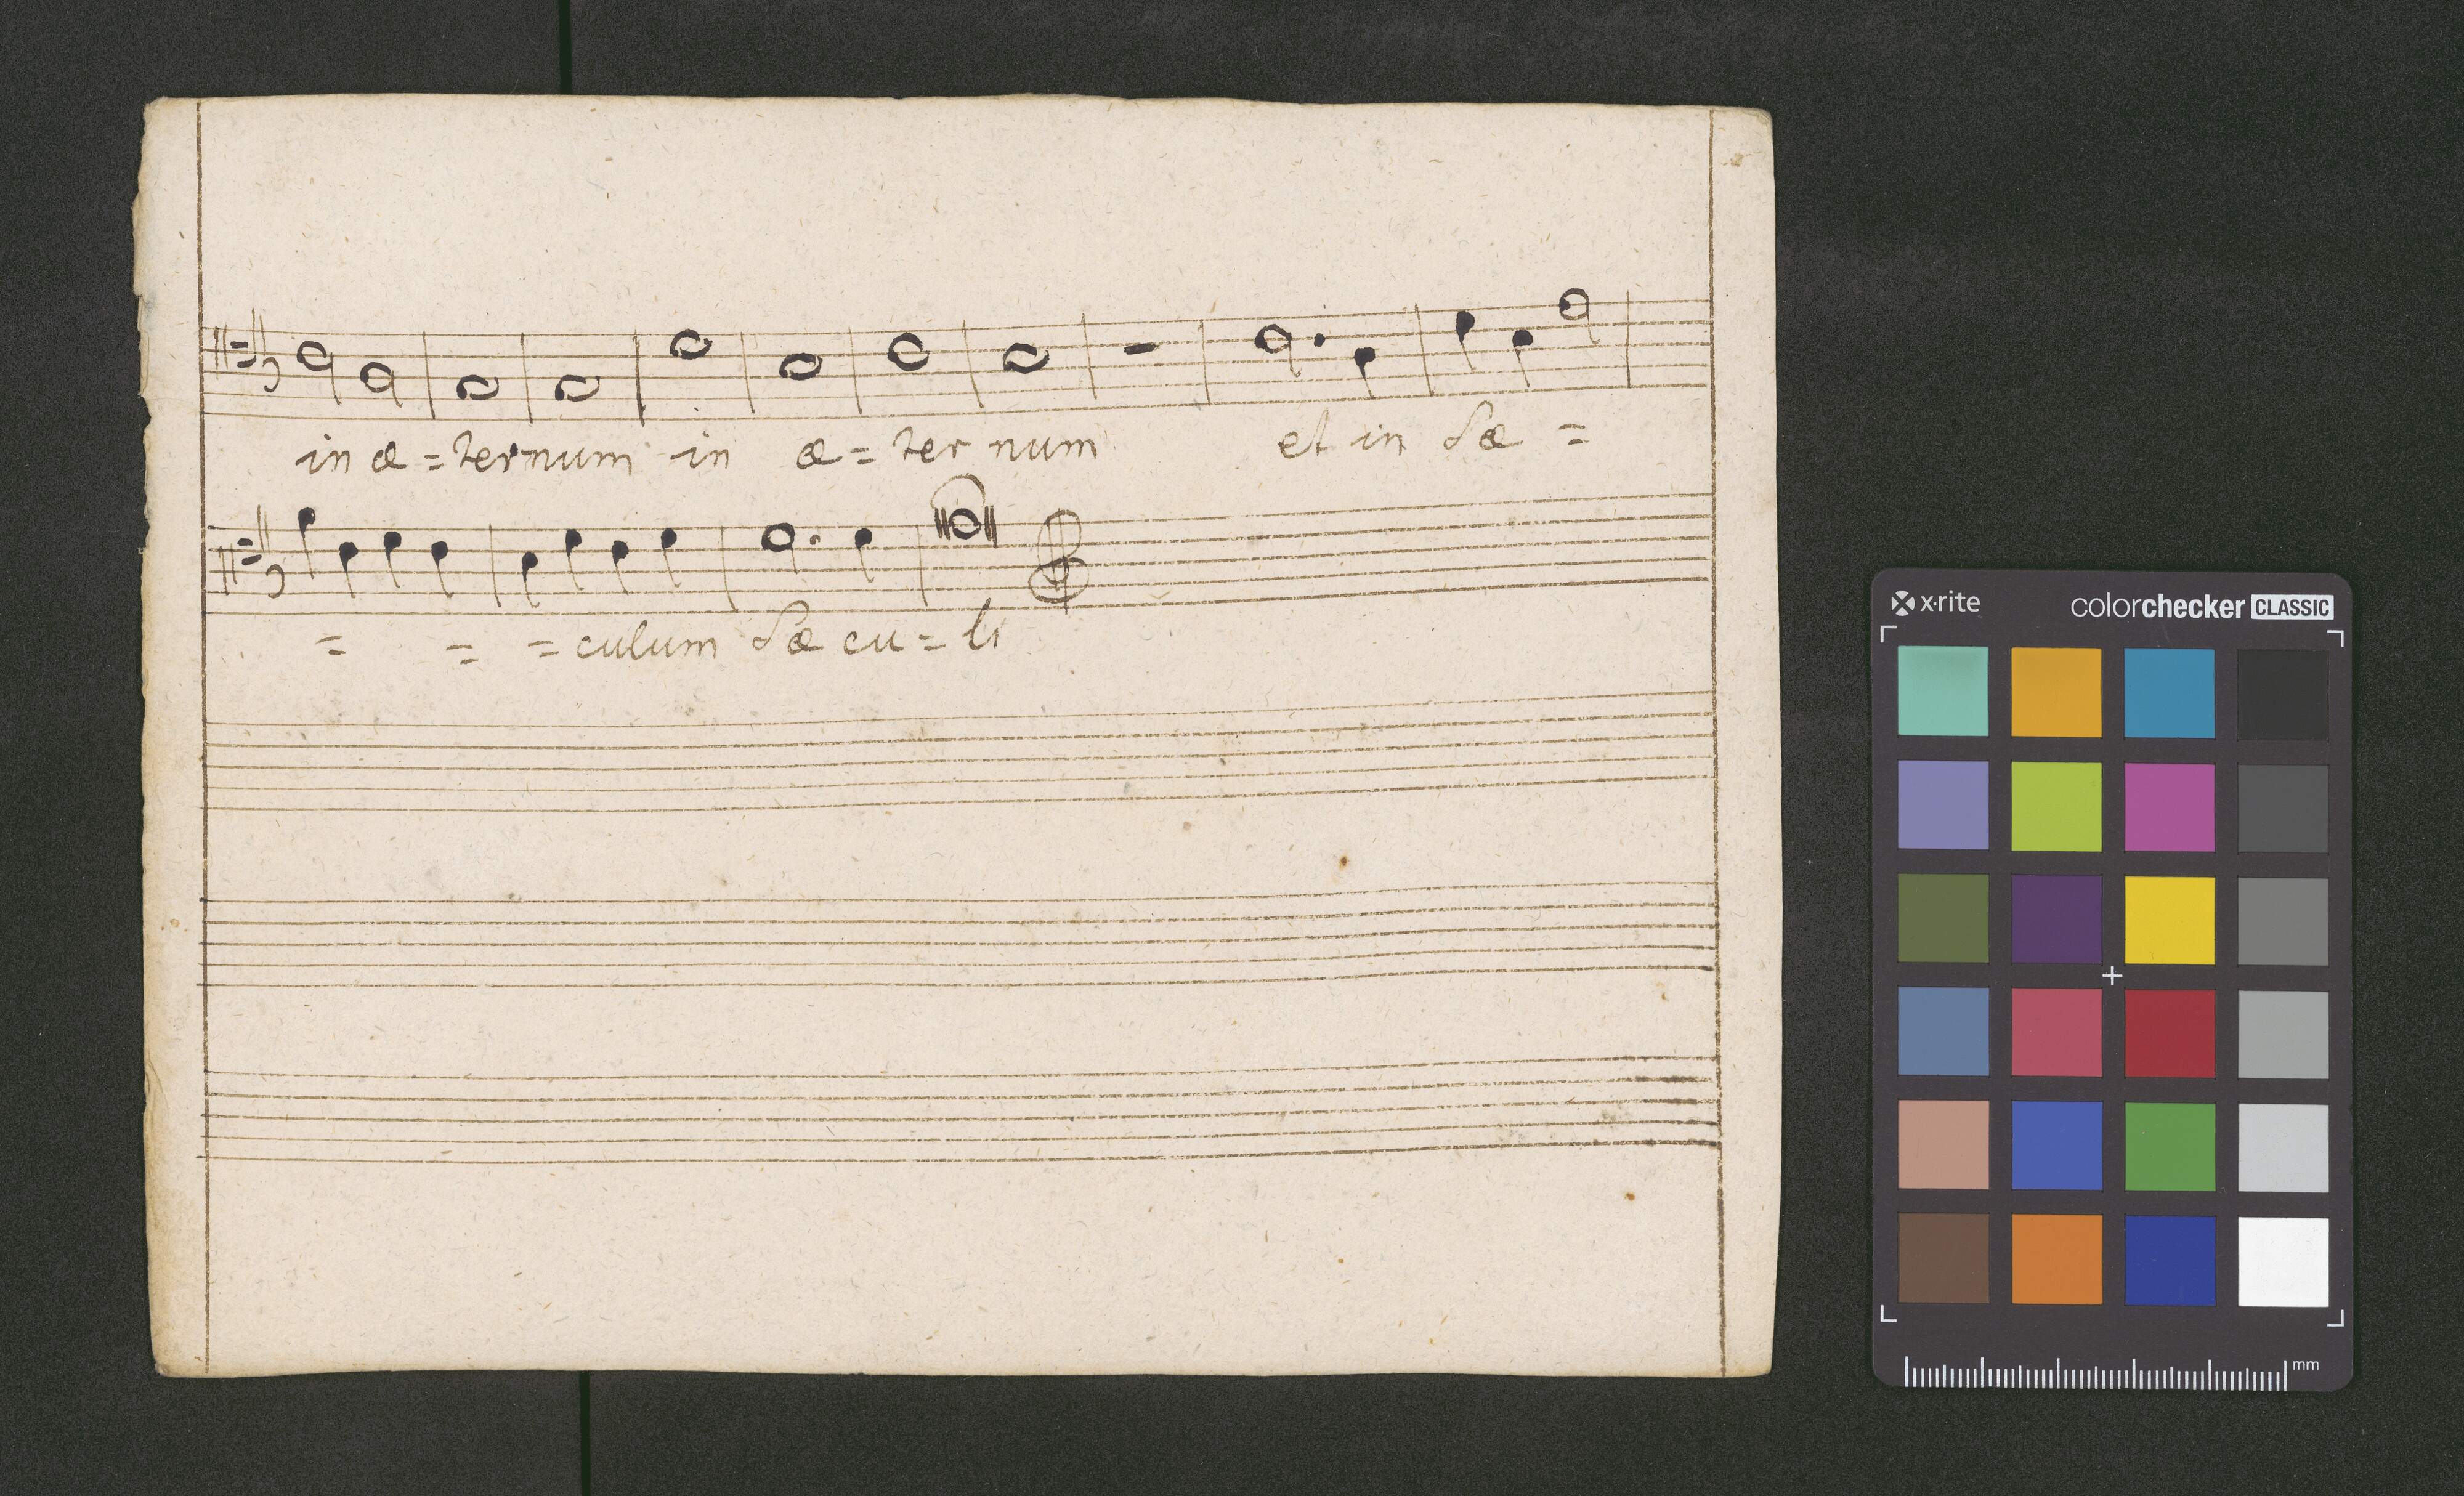 in æ = ternum in æ = ter num et in sæ =
= = = culum sæ cu = li
x·rite
colorchecker CLASSIC
mm